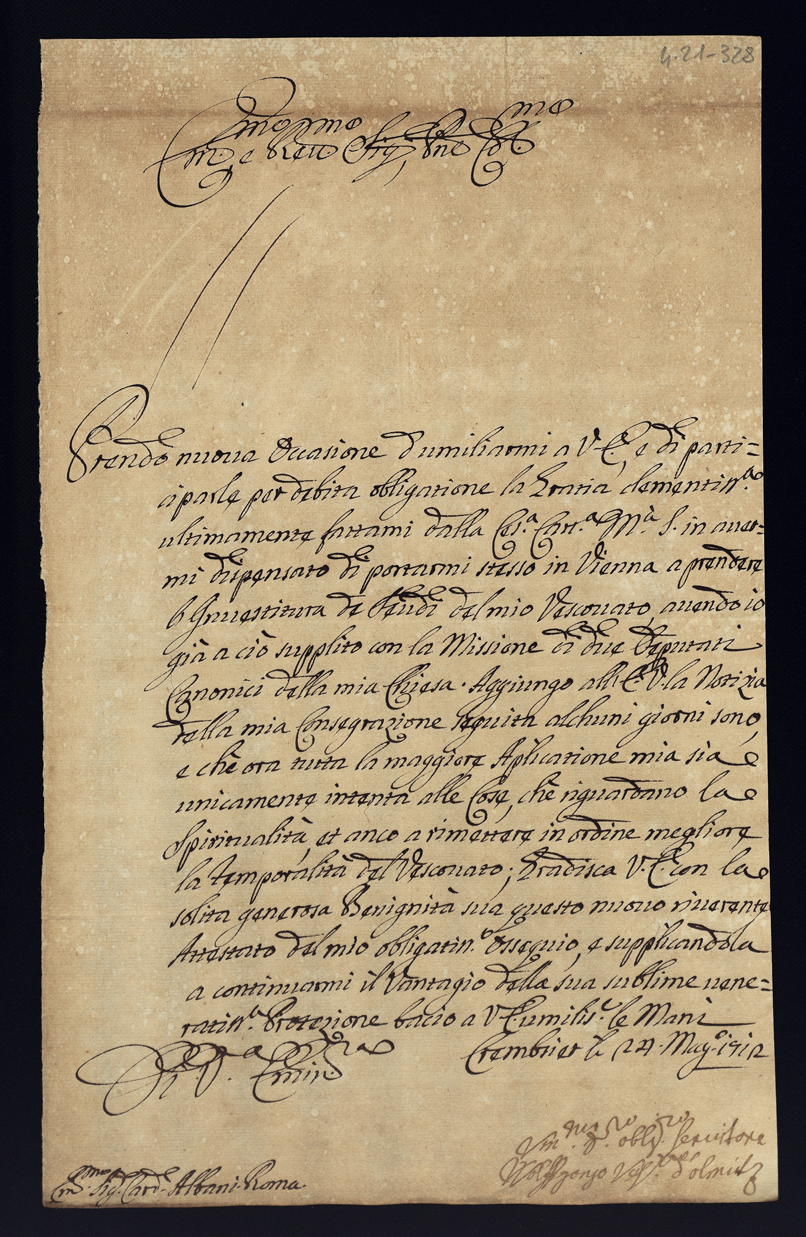 4-21-328
Em.mo e Re.mo Sig.r, P.ne Col.mo
Prendo nuova Occasione d'umiliarmi a V. E., e di parti=
ciparle per debita obligatione la Gratia clementiss.a
ultimamente fattami dalla Ces.a Catt.a M.à S. in aver=
mi dispensato di portarmi stesso in Vienna a prendere
l'Investitura de Feudi del mio Vescouato, auendo io
già a ciò supplito con la Missione di due Deputati
Canonici della mia Chiesa. Aggiungo all'E. V. la Notizia
della mia Consegrazione seguita alchuni giorni sono,
e che ora tutta la maggiore Aplicatione mia sia
unicamente intenta alle Cose, che riguardano la
Spiritualità, et anco a rimettere in ordine megliore
la temporalità del Vescouato; Gradisca V. E. con la
solita generosa Benignità sua questo nuouo riuerente
Attestato del mio obligatiss.o Ossequio, e supplicandola
a continuarmi il Vantagio della sua sublime uene=
ratiss.a Protezione bacio a V. E. umiliss.e le Mani
Crembsier le 24. Mag.o 1712
Di V. Emin.za
Um.mo obl.mo Seruitore
Wolffgango Ves.o d'Olmitz
Em.mo Sig. Card.le Albani. Roma.